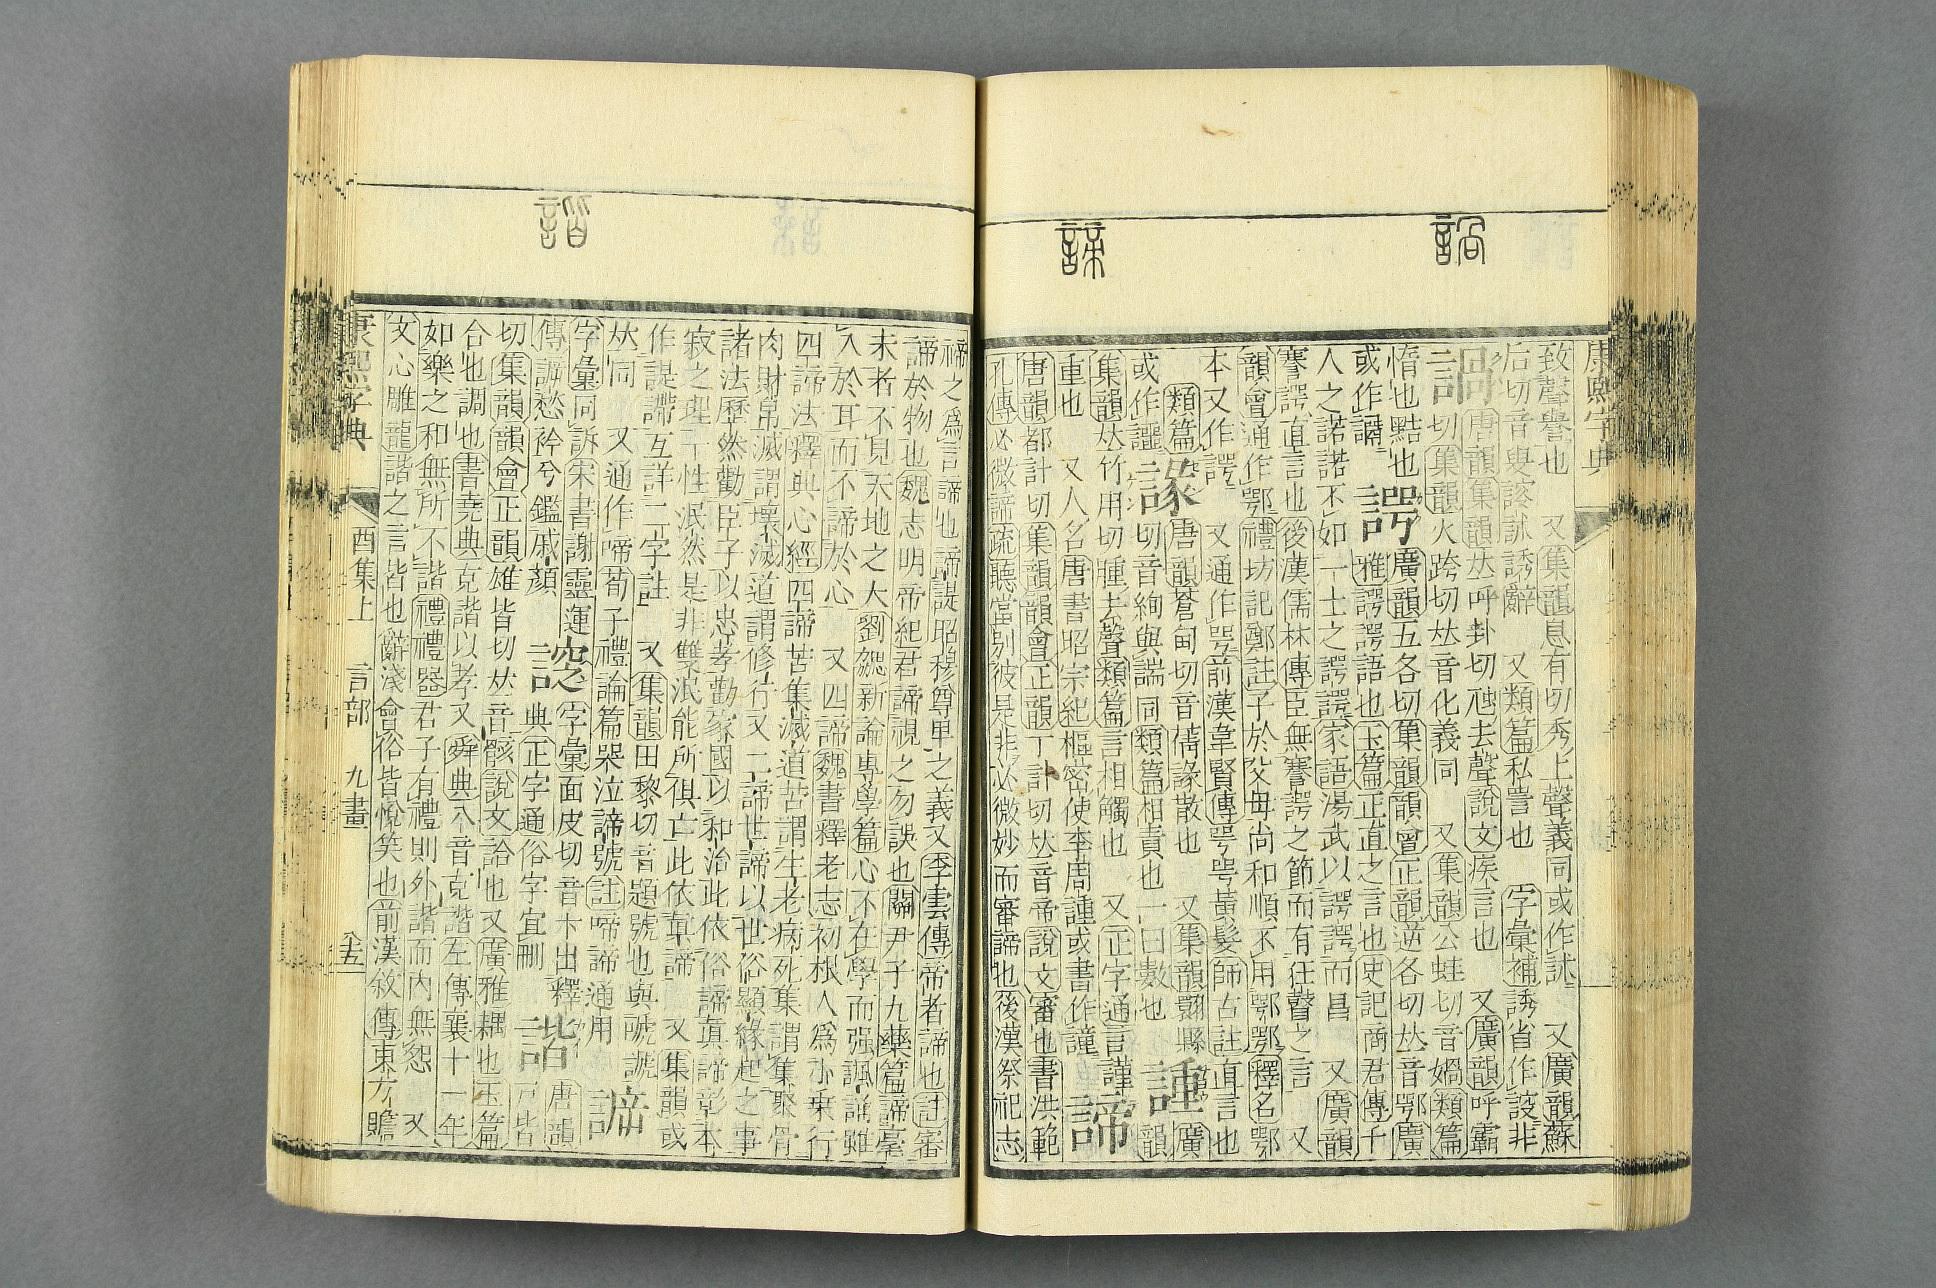 康熙字典
致聲譽也 又集韻息有切秀上聲義同或作訹 又廣韻蘇
后切音叟謏訹誘辭 又類篇私詈也 字彙補誘省作䛵非
唐韻集韻𠀤呼卦切 去聲說文疾言也 又廣韻呼霸
切集韻火跨切𠀤音化義同 又集韻公蛙切音媧類篇
惰也黠也
或作
諤 廣韻五各切集韻韻會正韻逆各切𠀤音鄂廣
雅諤諤語也玉篇正直之言也史記商君傳千
人之諾諾不如一士之諤諤家語湯武以諤諤而昌 又廣韻
謇諤直言也後漢儒林傳臣無謇諤之節而有狂瞽之言 又
韻會通作鄂禮坊記鄭註子於父母尚和順不用鄂鄂釋名鄂
本又作諤 又通作咢前漢韋賢傳咢咢黃髮師古註直言也
類篇
或作
唐韻蒼甸切音倩 散也 又集韻翾縣
切音絢與諯同類篇相責也一曰數也
諥 廣韻
集韻𠀤竹用切腫去聲類篇言相觸也 又正字通言謹
重也 又人名唐書昭宗紀樞密使李周諥或書作
諦
唐韻都計切集韻韻會正韻丁計切𠀤音帝說文審也書洪範
孔傳必微諦疏聽當別彼是非必微妙而審諦也後漢祭祀志
諦
諧
禘之爲言諦也諦諟昭穆尊卑之義又李雲傳帝者諦也註審
諦於物也魏志明帝紀君諦視之勿誤也關尹子九藥篇諦毫
末者不見天地之大劉勰新論專學篇心不在學而强諷誦雖
入於耳而不諦於心 又四諦魏書釋老志初根人爲小乗行
四諦法釋典心經四諦苦集滅道苦謂生老病死集謂集聚骨
肉財帛滅謂壞滅道謂修行又二諦世諦以世俗顯緣起之事
諸法歷然勸臣子以忠孝勸家國以和治此依俗諦眞諦彰本
寂之理一性泯然是非雙泯能所俱亡此依眞諦 又集韻或
作諟 互詳二字註 又集韻田黎切音題號也與嗁謕
𠀤同 又通作啼荀子禮論篇哭泣諦號註啼諦通用
字彙同訴宋書謝靈運
傳 愁衿兮鑑戚顏
字彙面皮切音 出釋
典正字通俗字宜刪
諧 唐韻戸皆
切集韻韻會正韻雄皆切𠀤音骸說文詥也又廣雅耦也玉篇
合也調也書堯典克諧以孝又舜典八音克諧左傳襄十一年
如樂之和無所不諧禮禮器君子有禮則外諧而内無怨 又
文心雕龍諧之言皆也辭淺會俗皆悅笑也前漢敘傳東方贍
康熙字典 酉集上 言部 九畫